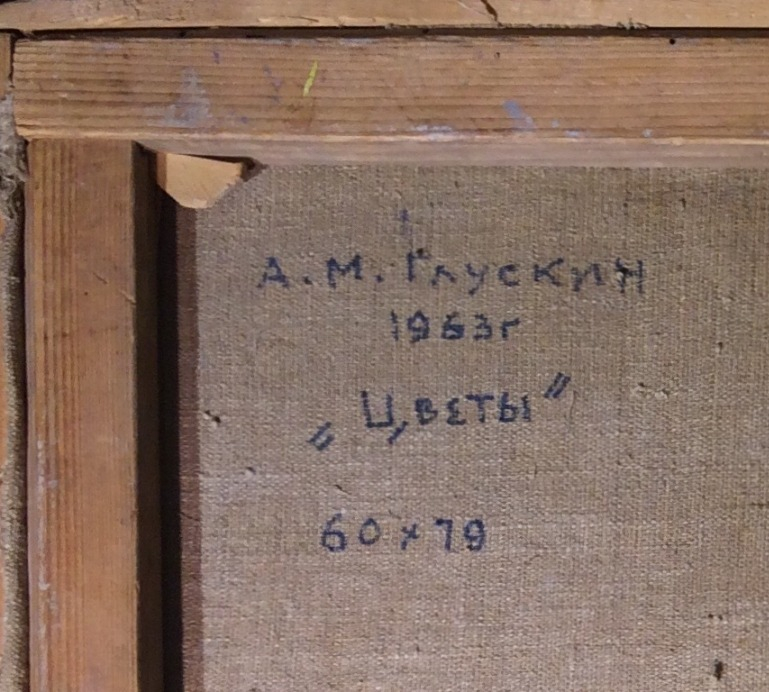 А.М. Глускин
1963г
„Цветы"
60×79